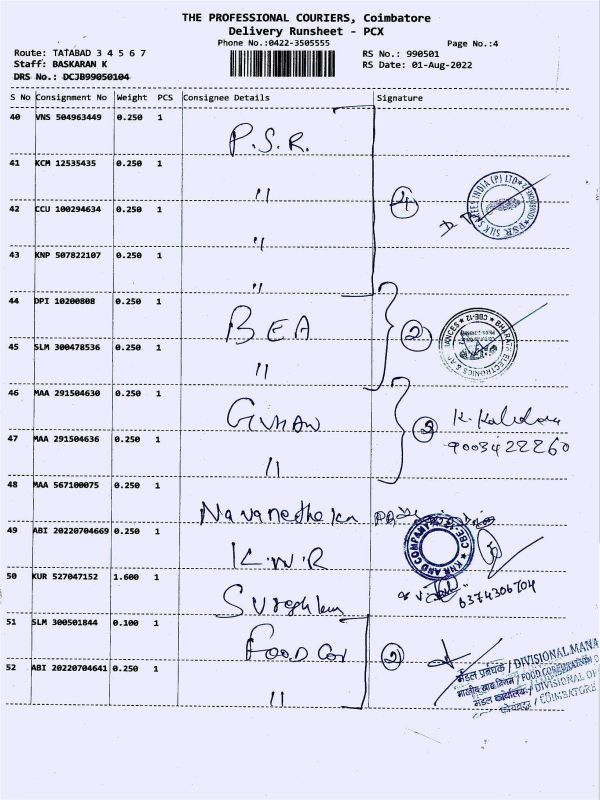 THE PROFESSIONAL COURIERS, Coimbatore
Delivery Runsheet - PCX
Phone No.:0422-3505555
Page No.:4
Route: TATABAD 3 4 5 6 7
RS No.: 990501
Staff: BASKARAN K
RS Date: 01-Aug-2022
DRS No.: DCJB99050104
S No Consignment No Weight PCS Consignee Details Signature
40 VNS 504963449 0.250 1
P.S.R.
41 KCM 12535435 0.250 1
"
42 CCU 100294634 0.250 1
4
"
43 KNP 507822107 0.250 1
"
44 DPI 10200808 0.250 1
BEA
2
45 SLM 300478536 0.250 1
"
46 MAA 291504630 0.250 1
9003422260
47 MAA 291504636 0.250 1
"
48 MAA 567100075 0.250 1
49 ABI 20220704669 0.250 1
K.N.R
KNR AND COMPANY ★ CBE-12 ★
50 KUR 527047152 1.600 1
6374306704
51 SLM 300501844 0.100 1
FOOD Cor
2
52 ABI 20220704641 0.250 1
"
मंडल प्रबंधक / DIVISIONAL MANA
भारतीय खाद्य निगम / FOOD CORPORATION O
मंडल कार्यालय / DIVISIONAL OF
कोयंबटूर / COIMBATORE